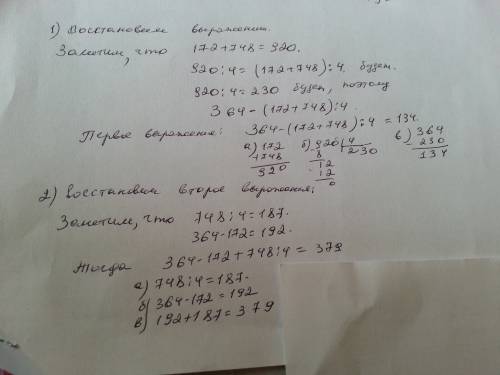 1) Восстановим выражения.
Заметим, что 172+748=920.
920:4=(172+748):4 будет.
920:4=230 будет, поэтому
364-(172+748):4.
Первое выражения: 364-(172+748):4=134.
а) 172 б) 920|4 в) 364
+748 8 230 -230
920 12 134
12
0
2) Восстановим второе выражения;
Заметим, что 748:4=187.
364-172=192.
Тогда 364-172+748:4=379
а) 748:4=187.
б) 364-172=192
в) 192+187=379